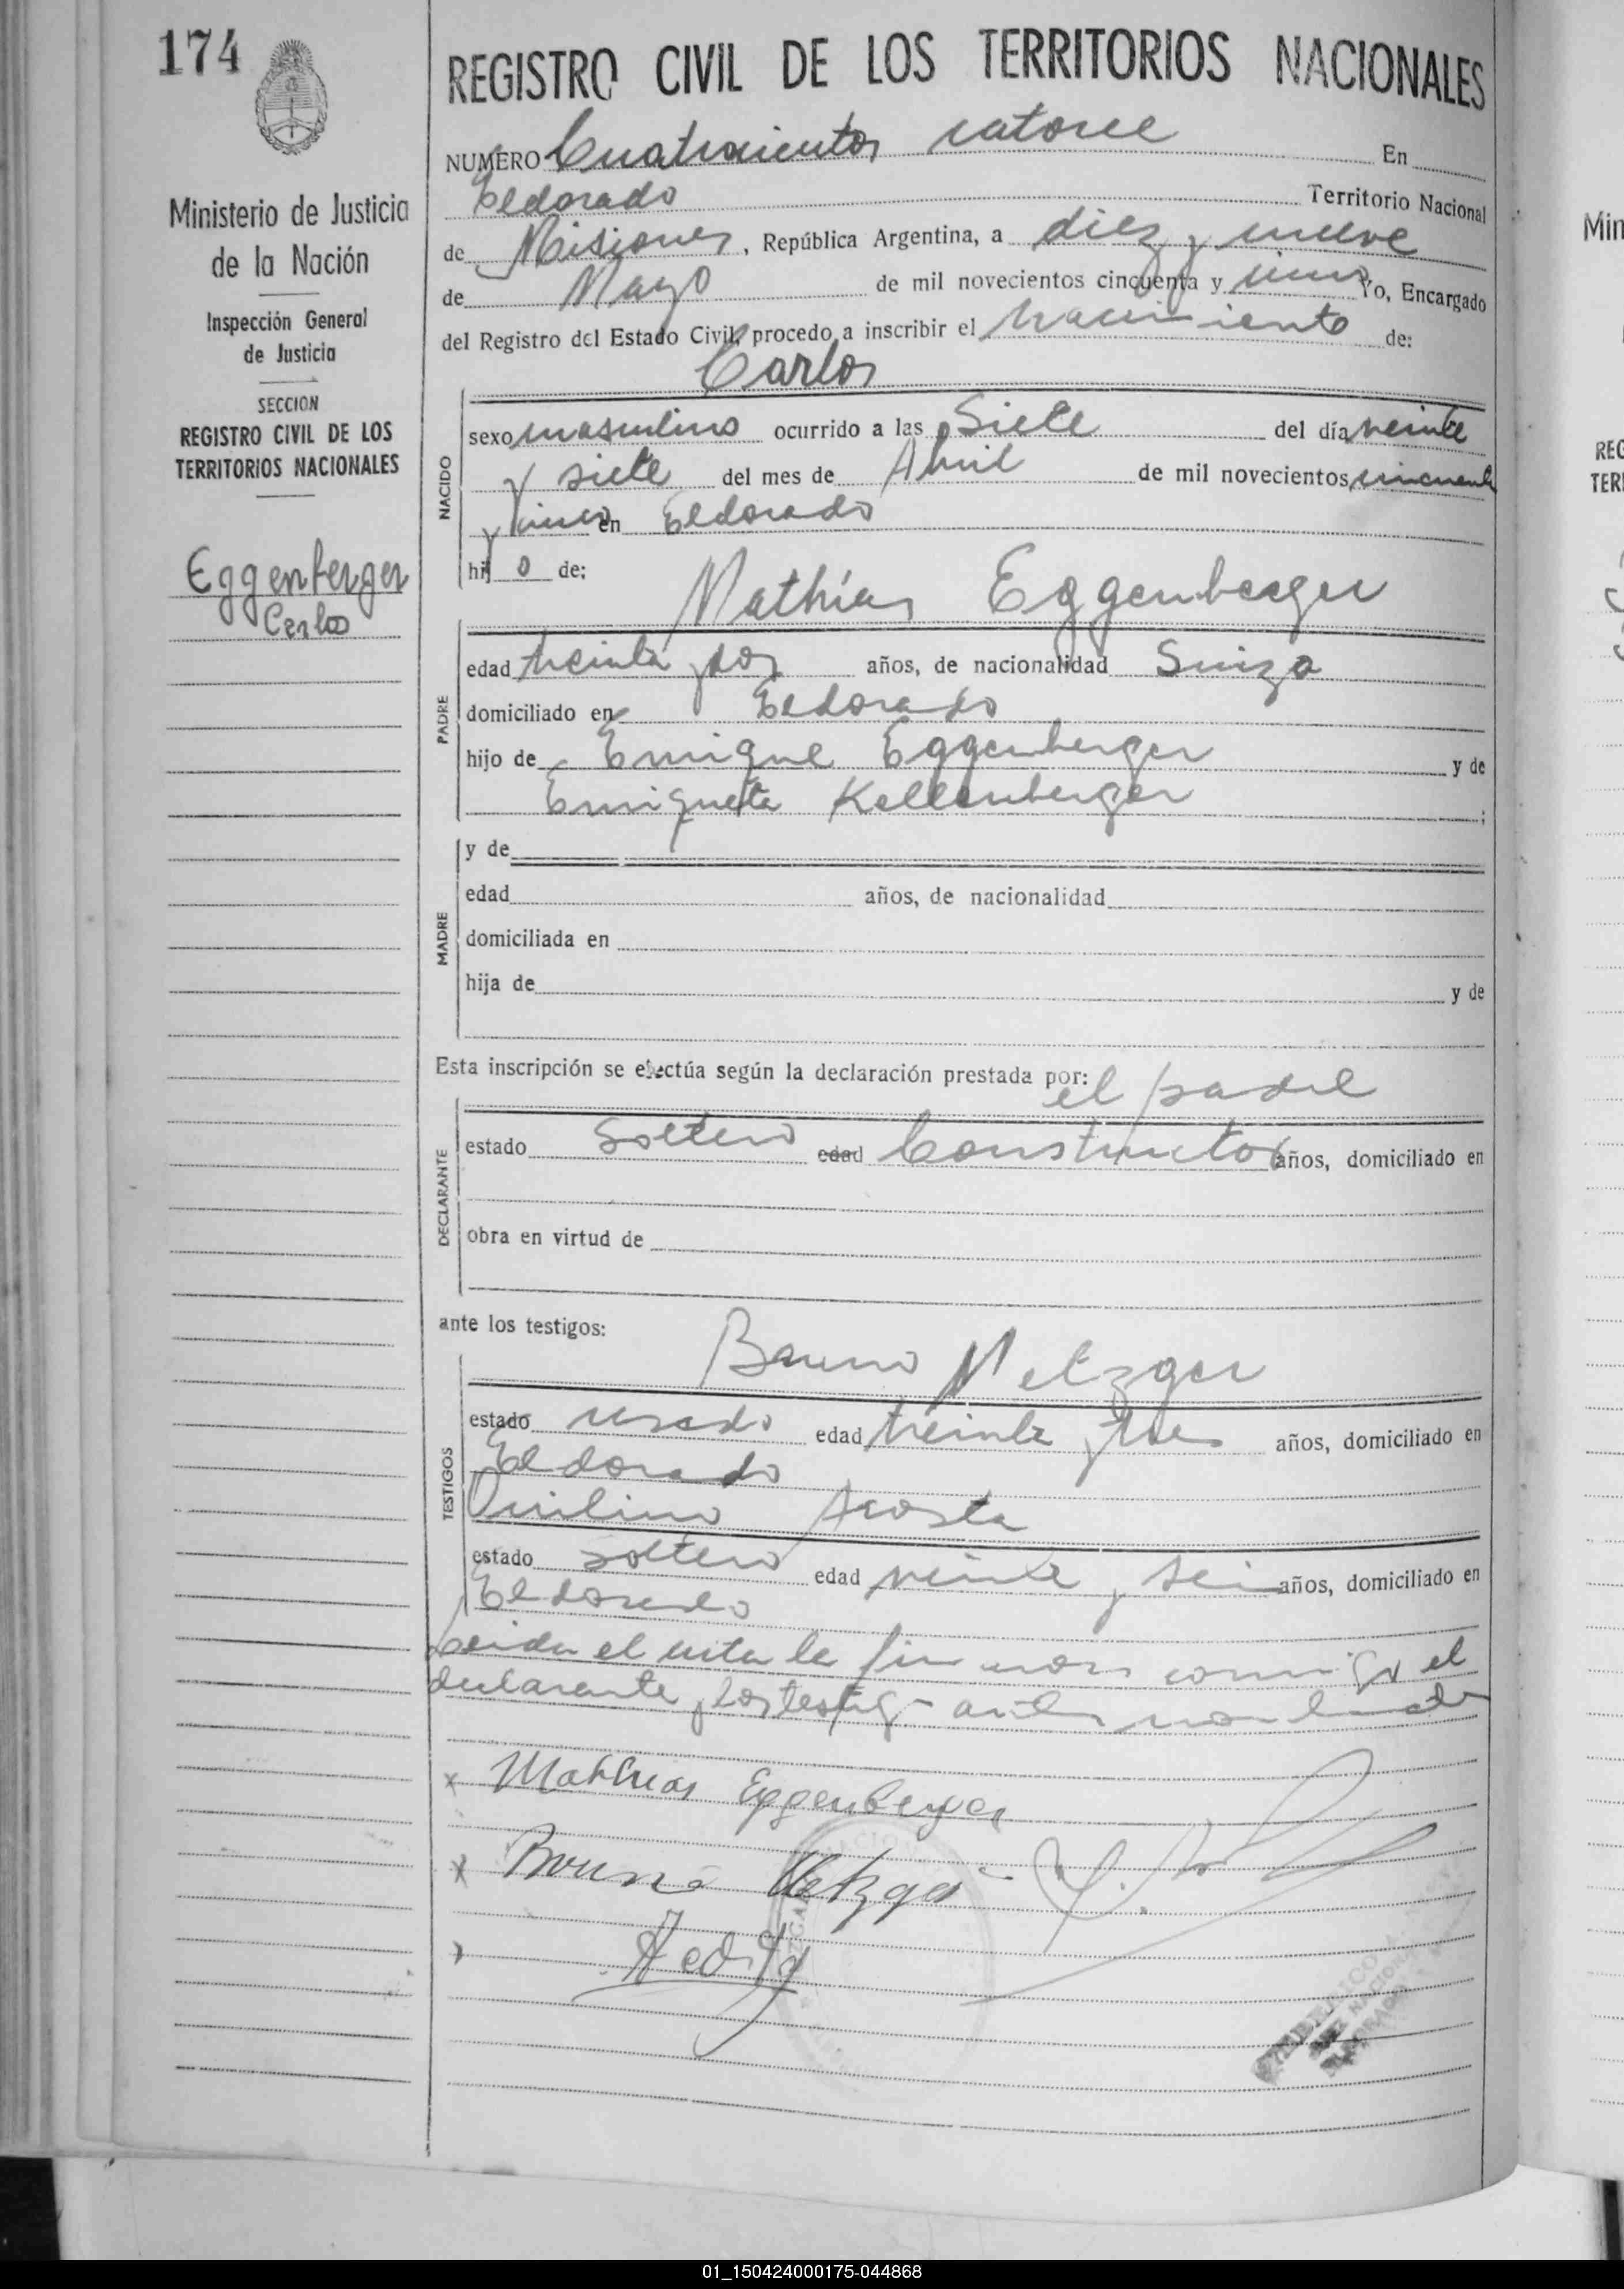 174
Ministerio de Justicia
de la Nación
Inspección General
de Justicia
SECCION
REGISTRO CIVIL DE LOS
TERRITORIOS NACIONALES
Eggenberger
Carlos
REGISTRO CIVIL DE LOS TERRITORIOS NACIONALES
NUMERO Cuatrocientos catorce En
Eldorado Territorio Nacional
de Misiones, República Argentina, a diez y nueve
de Mayo de mil novecientos cincuenta y cinco Yo, Encargado
del Registro del Estado Civil, procedo a inscribir el nacimiento de:
Carlos
NACIDO
sexo masculino ocurrido a las Siete del día veinte
y siete del mes de Abril de mil novecientos cincuenta
y cinco en Eldorado
hijo de:
Mathías Eggenberger
PADRE
edad treinta y dos años, de nacionalidad Suiza
domiciliado en Eldorado
hijo de Enrique Eggenberger y de
Enriqueta Kellenberger ;
MADRE
y de
edad años, de nacionalidad
domiciliada en
hija de y de
Esta inscripción se efectúa según la declaración prestada por:
el padre
DECLARANTE
estado Soltero edad Constructor años, domiciliado en
obra en virtud de
ante los testigos:
Bruno Metzger
TESTIGOS
estado casado edad treinta y tres años, domiciliado en
Eldorado
Acosta
estado soltero edad veinte y seis años, domiciliado en
Eldorado
Leida el acta la firmaron conmigo el
declarante y los testigos
x Mathias Eggenberger
x Bruno Metzger
Min
REG
TER
01_150424000175-044868